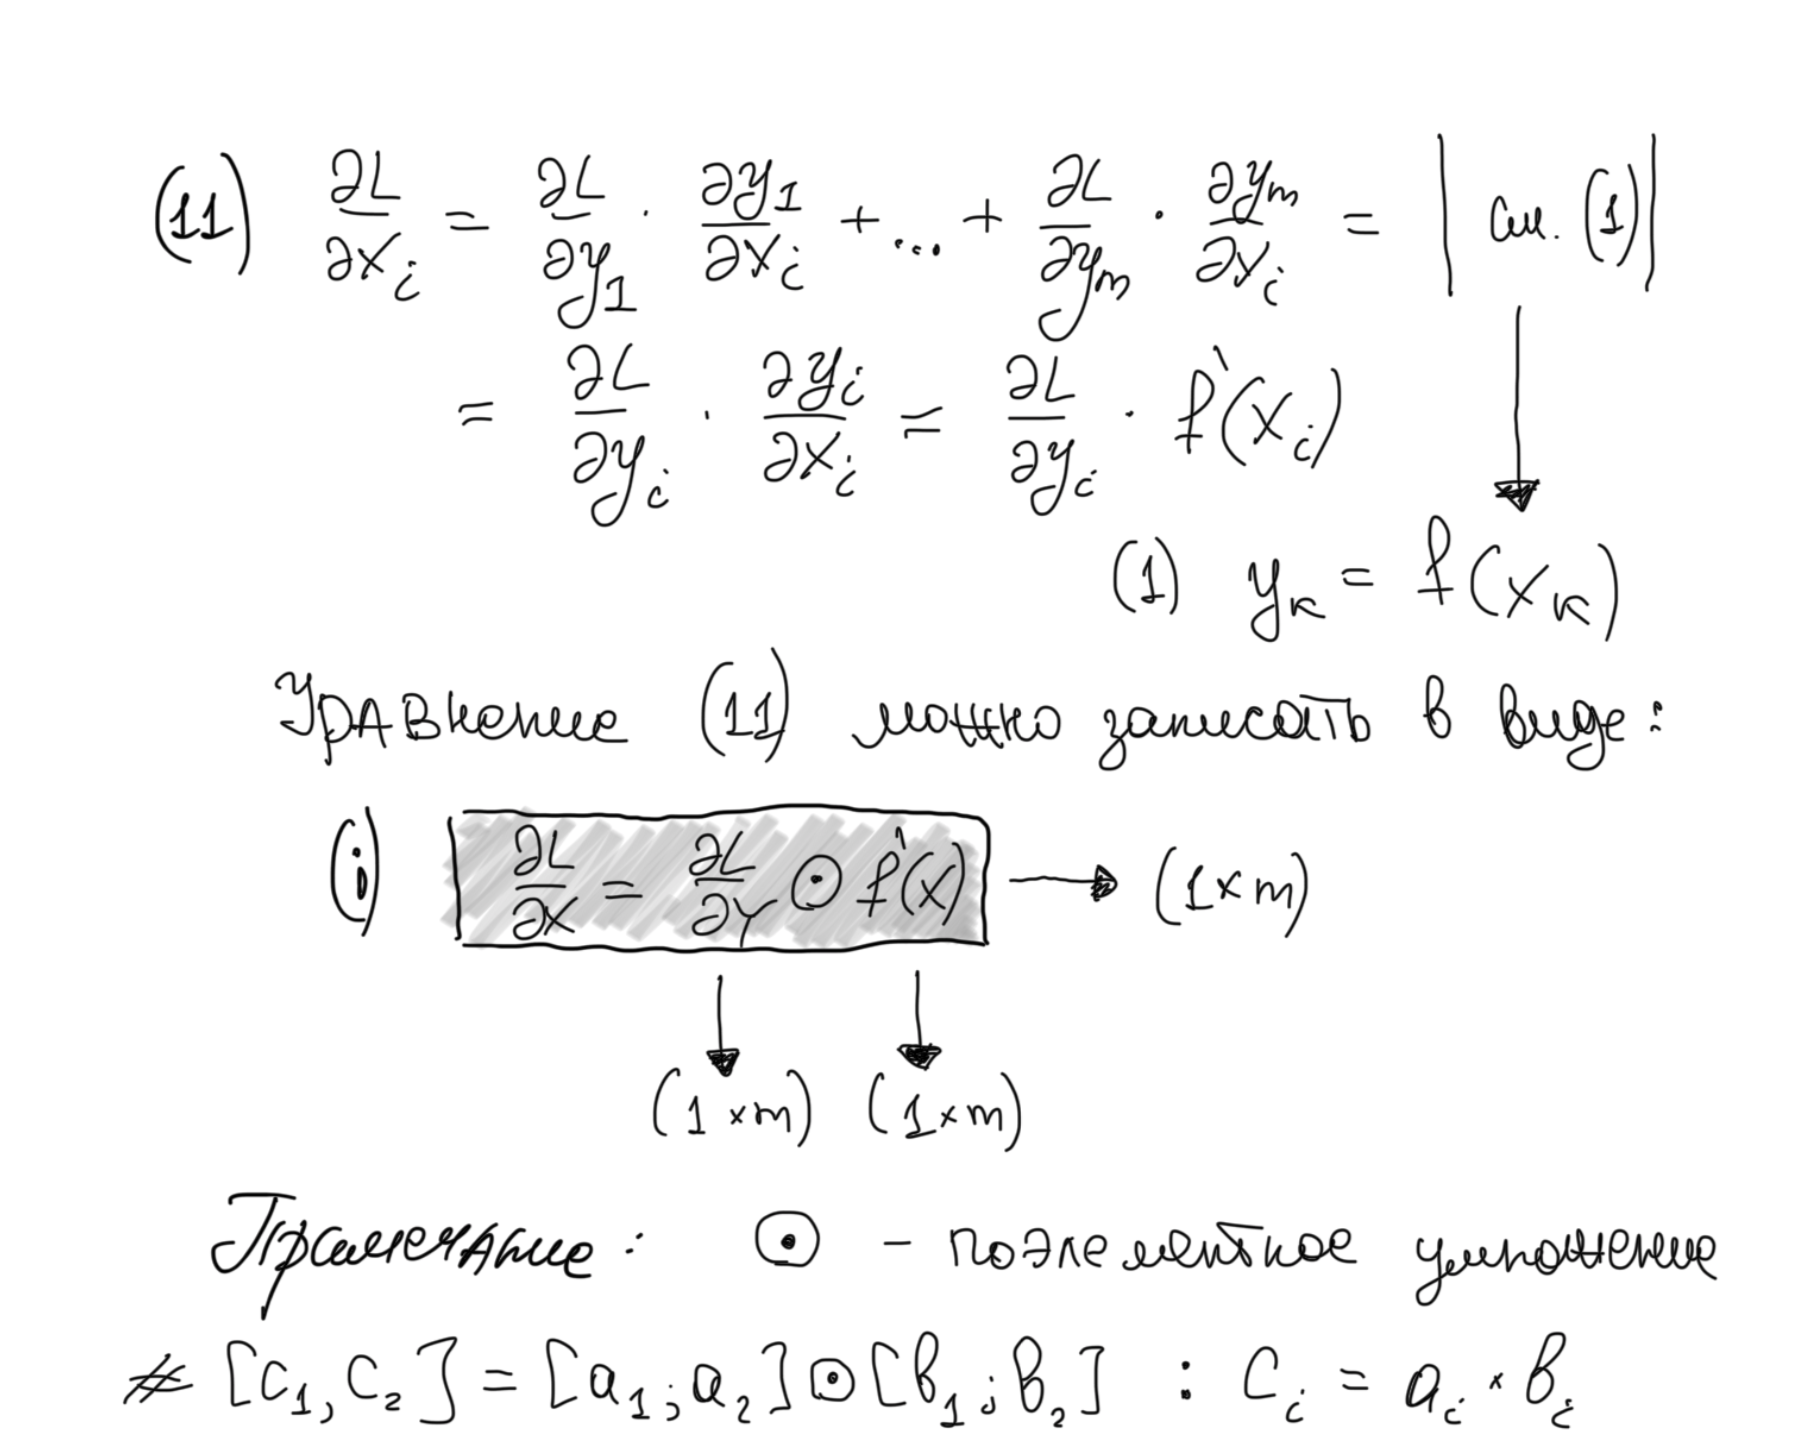 (11) ∂L/∂x_i = ∂L/∂y_1 · ∂y_1/∂x_i + ... + ∂L/∂y_m · ∂y_m/∂x_i = | см. (1) |
= ∂L/∂y_i · ∂y_i/∂x_i = ∂L/∂y_i · f'(x_i)
(1) y_к = f(x_к)
Уравнение (11) можно записать в виде:
(i) ∂L/∂X = ∂L/∂Y ⊙ f'(X) → (1×m)
(1×m) (1×m)
Примечание: ⊙ - поэлементное умножение
# [c_1, c_2] = [a_1; a_2] ⊙ [b_1; b_2] : c_i = a_i × b_i